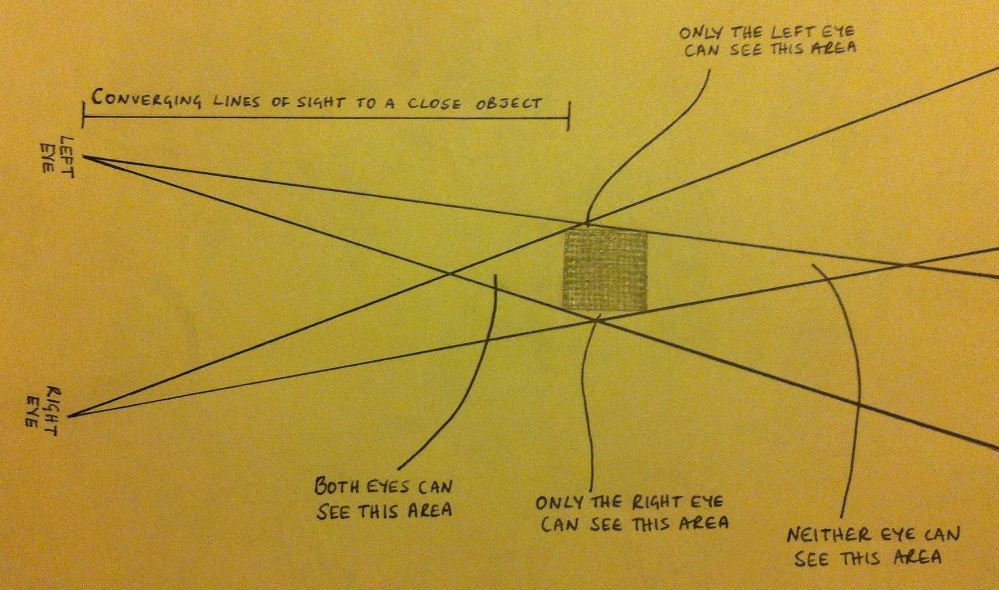 ONLY THE LEFT EYE
CAN SEE THIS AREA
CONVERGING LINES OF SIGHT TO A CLOSE OBJECT
LEFT
EYE
RIGHT
EYE
BOTH EYES CAN
SEE THIS AREA
ONLY THE RIGHT EYE
CAN SEE THIS AREA
NEITHER EYE CAN
SEE THIS AREA